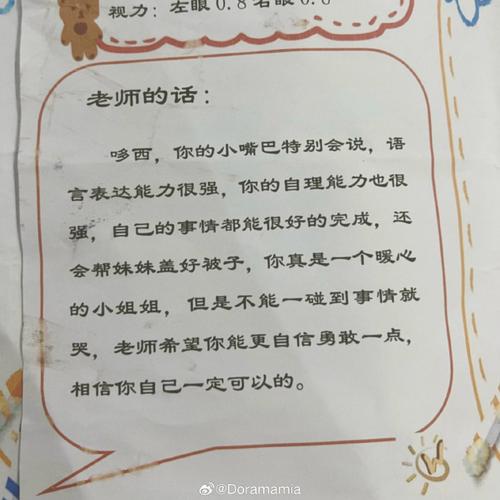 视力：左眼0.8右眼0.6
老师的话：
哆西，你的小嘴巴特别会说，语
言表达能力很强，你的自理能力也很
强，自己的事情都能很好的完成，还
会帮妹妹盖好被子，你真是一个暖心
的小姐姐，但是不能一碰到事情就
哭，老师希望你能更自信勇敢一点，
相信你自己一定可以的。
@Doramamia